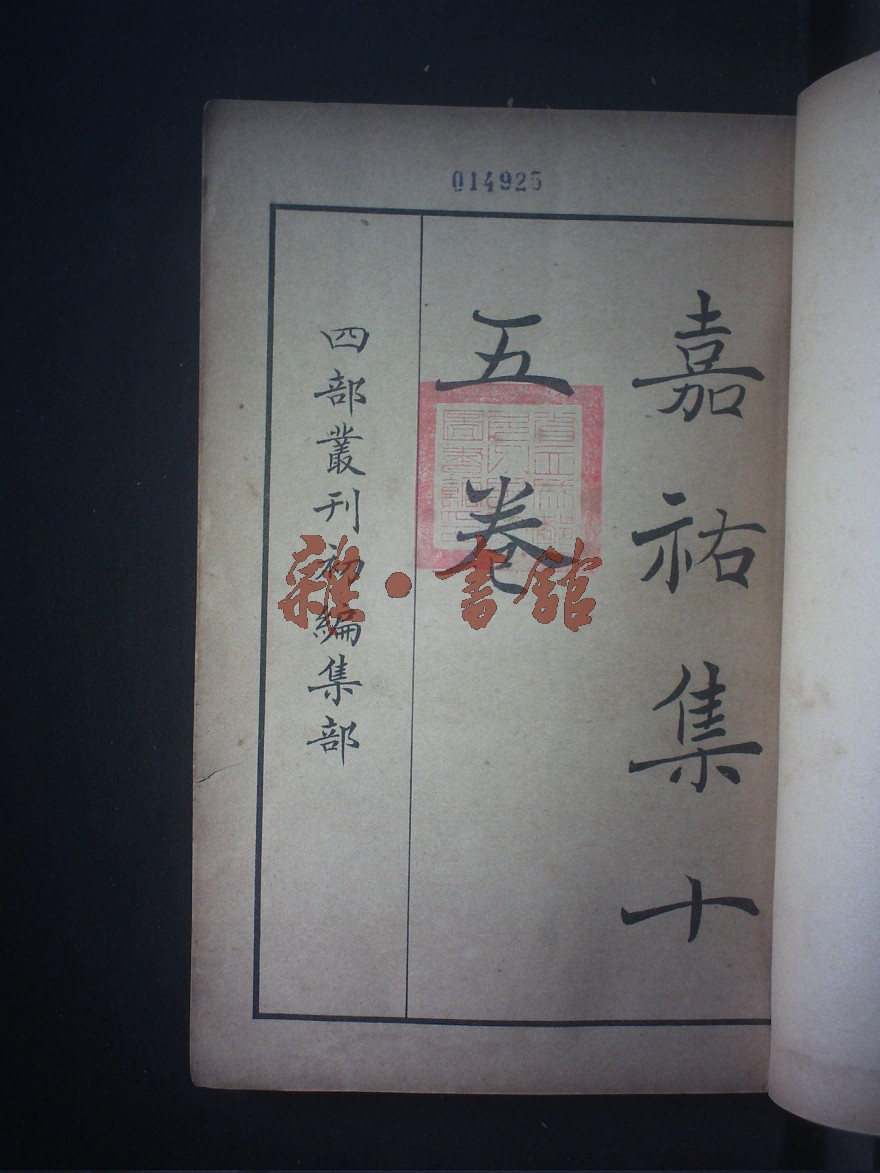 014925
嘉祐集十
五卷
四部叢刊初編集部
雜·書館